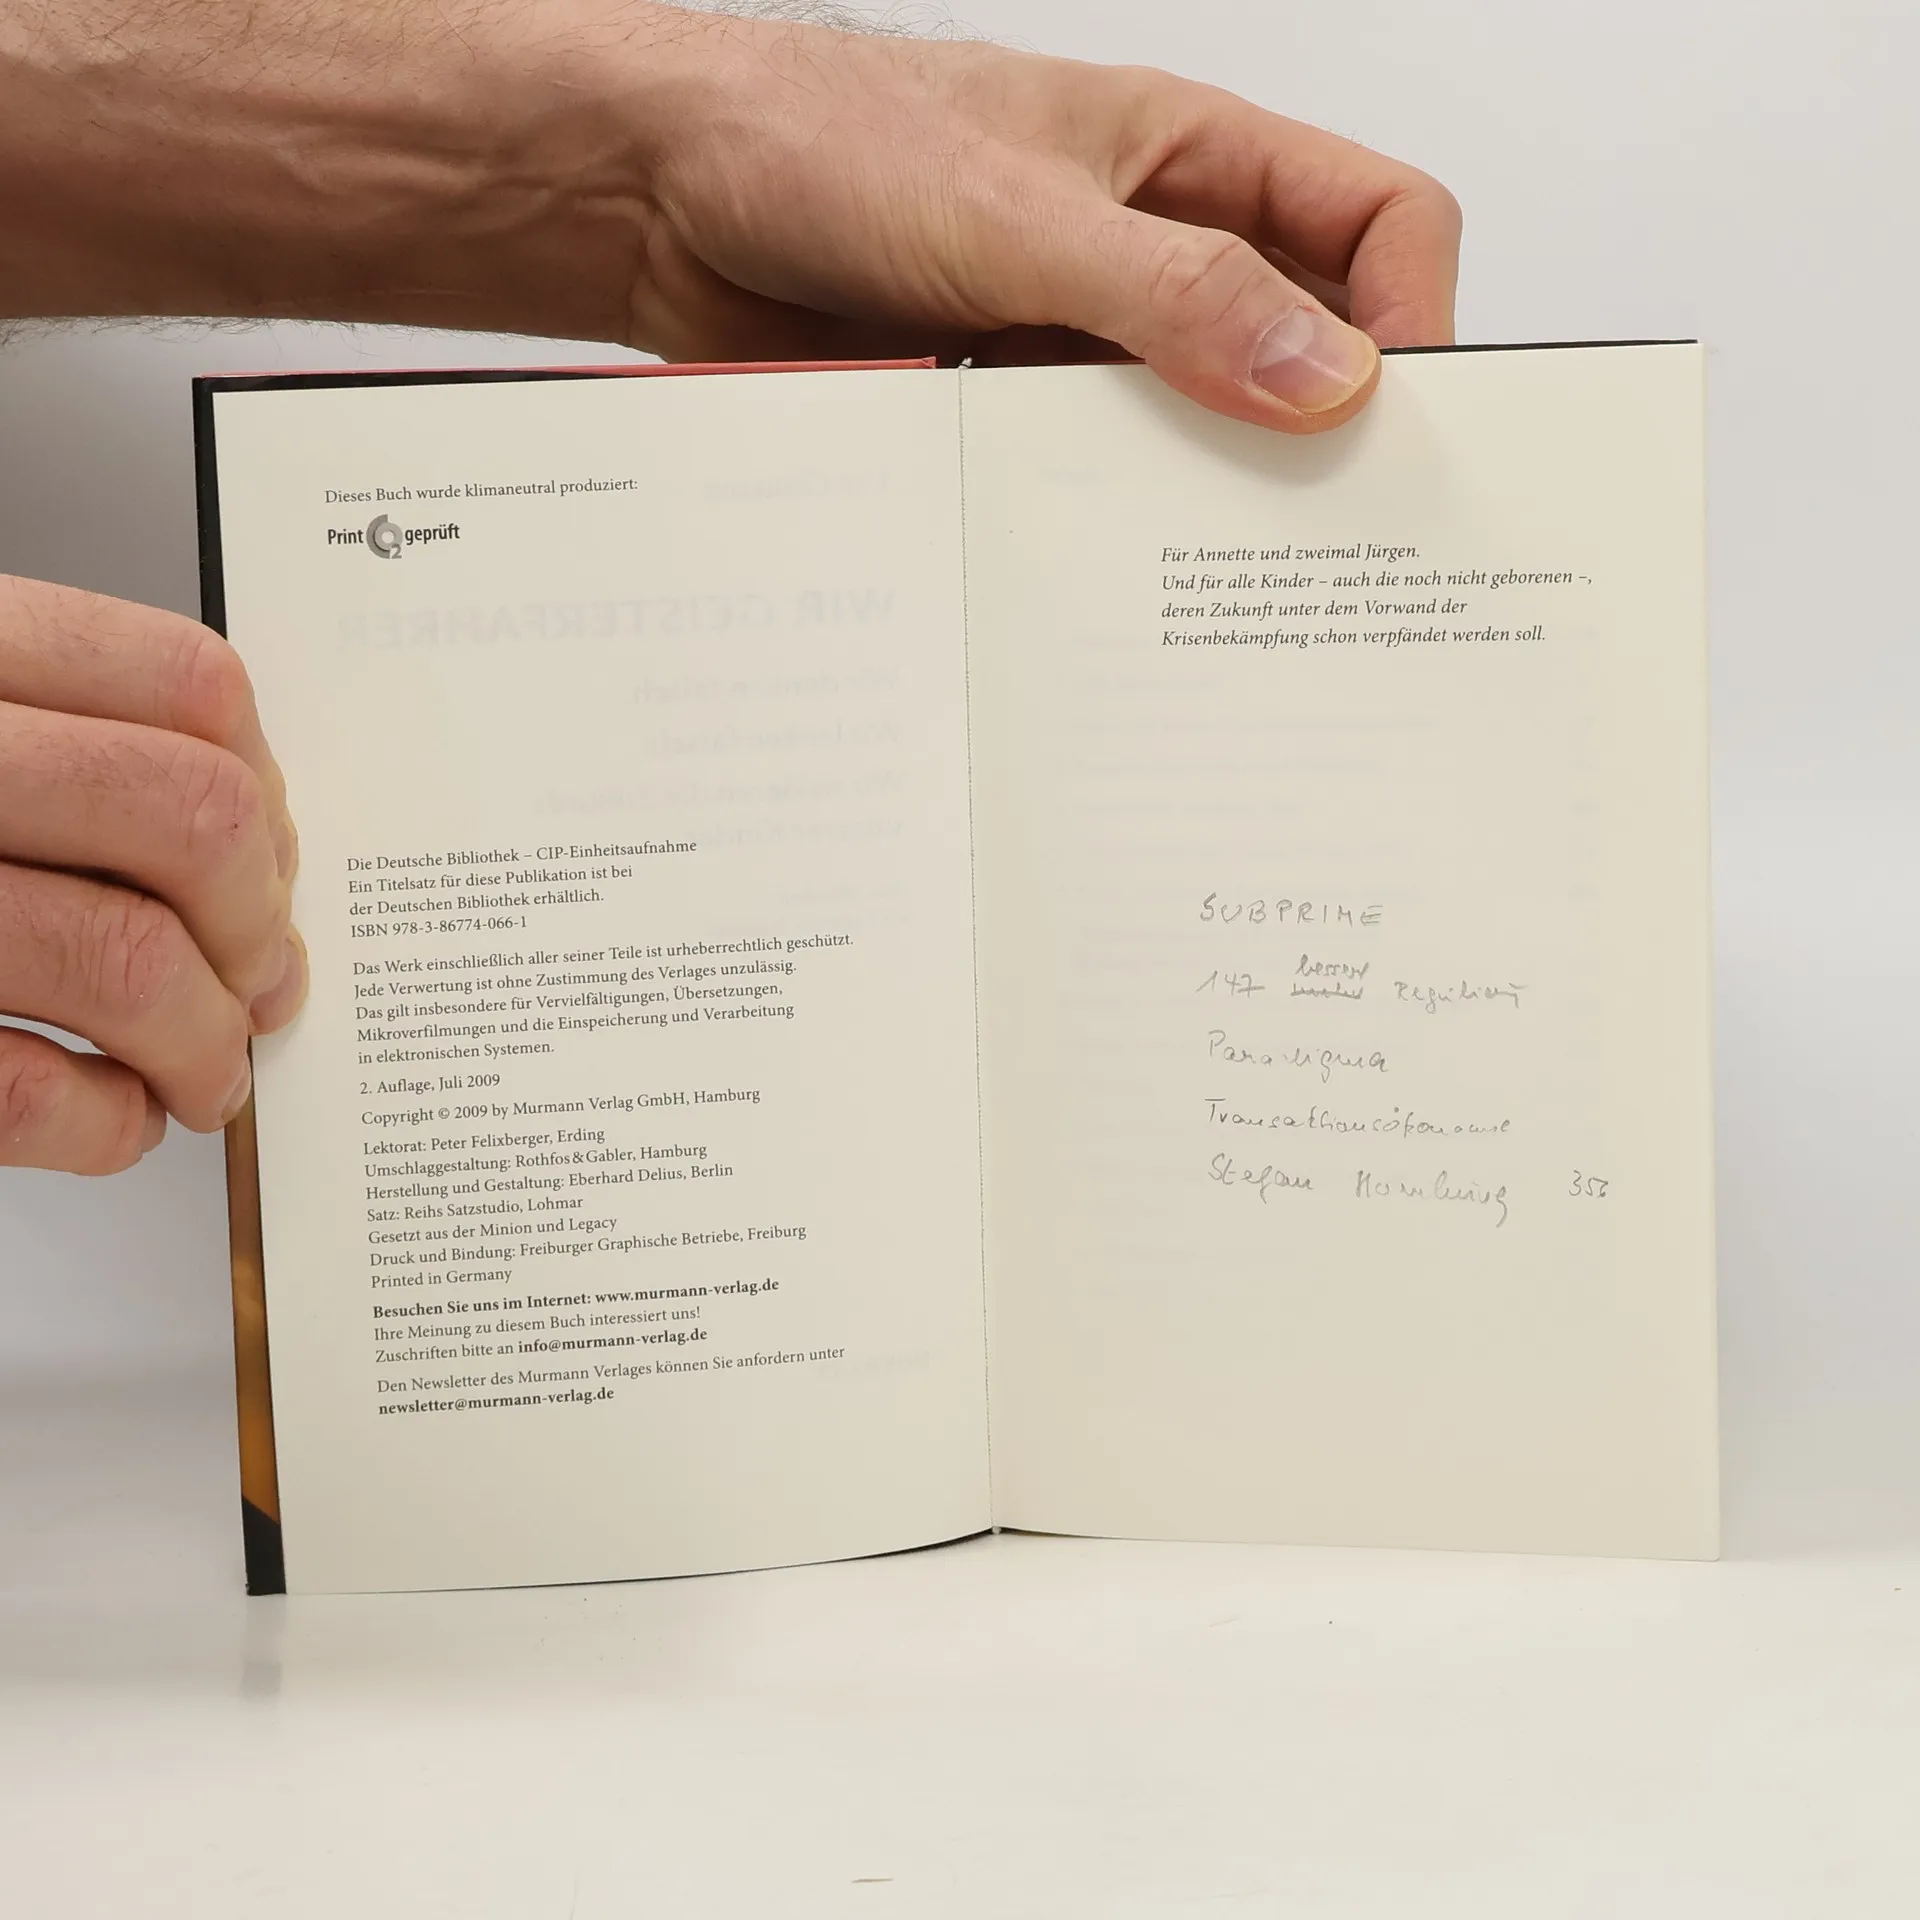 Dieses Buch wurde klimaneutral produziert:
Print CO2 geprüft
WIR GEISTERFAHRER
Die Deutsche Bibliothek – CIP-Einheitsaufnahme
Ein Titelsatz für diese Publikation ist bei
der Deutschen Bibliothek erhältlich.
ISBN 978-3-86774-066-1
Das Werk einschließlich aller seiner Teile ist urheberrechtlich geschützt.
Jede Verwertung ist ohne Zustimmung des Verlages unzulässig.
Das gilt insbesondere für Vervielfältigungen, Übersetzungen,
Mikroverfilmungen und die Einspeicherung und Verarbeitung
in elektronischen Systemen.
2. Auflage, Juli 2009
Copyright © 2009 by Murmann Verlag GmbH, Hamburg
Lektorat: Peter Felixberger, Erding
Umschlaggestaltung: Rothfos & Gabler, Hamburg
Herstellung und Gestaltung: Eberhard Delius, Berlin
Satz: Reihs Satzstudio, Lohmar
Gesetzt aus der Minion und Legacy
Druck und Bindung: Freiburger Graphische Betriebe, Freiburg
Printed in Germany
Besuchen Sie uns im Internet: www.murmann-verlag.de
Ihre Meinung zu diesem Buch interessiert uns!
Zuschriften bitte an info@murmann-verlag.de
Den Newsletter des Murmann Verlages können Sie anfordern unter
newsletter@murmann-verlag.de
Für Annette und zweimal Jürgen.
Und für alle Kinder – auch die noch nicht geborenen –,
deren Zukunft unter dem Vorwand der
Krisenbekämpfung schon verpfändet werden soll.
SUBPRIME
besser
147
Paradigma
Transaktionsökonomie
Stefan Homburg